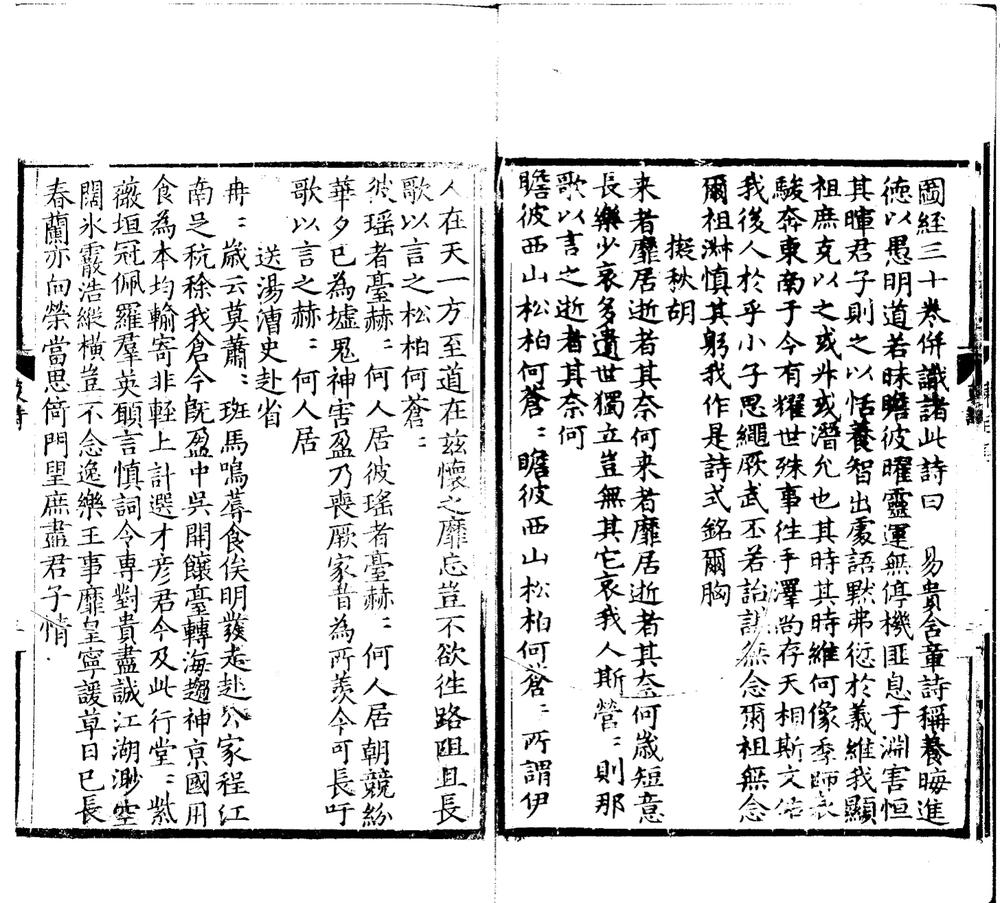 圖經三十卷併識諸此詩曰　易貴含章詩稱養晦進
德以愚明道若昧瞻彼曜靈運無停機匪息于淵害恒
其暉君子則之以恬養智出處語默弗愆於義維我顯
祖庶克以之或升或潛允也其時其時維何像季師表
駿奔東南于今有耀世殊事徃手澤尚存天相斯文佑
我後人於乎小子思繩厥武丕若詒謀無念爾祖無念
爾祖淋慎其躬我作是詩式銘爾胸
擬秋胡
来者靡居逝者其奈何来者靡居逝者其奈何歲短意
長樂少哀多遺世獨立豈無其它哀我人斯營〻則那
歌以言之逝者其奈何
瞻彼西山松柏何蒼〻瞻彼西山松柏何蒼〻所謂伊
人在天一方至道在兹懷之靡忘豈不欲徃路阻且長
歌以言之松柏何蒼〻
彼瑤者臺赫〻何人居彼瑤者臺赫〻何人居朝競紛
華夕已為墟鬼神害盈乃喪厥家昔為所羨今可長吁
歌以言之赫〻何人居
送湯漕史赴省
冉〻歲云莫蕭〻班馬鳴蓐食俟明發走赴公家程江
南足秔稌我倉今既盈中吳開饟臺轉海趨神京國用
食為本均輸寄非輕上計選才彦君今及此行堂〻紫
薇垣冠佩羅羣英願言慎詞令専對貴盡誠江湖渺空
闊氷霰浩縱橫豈不念逸樂王事靡皇寧諼草日已長
春蘭亦向榮當思倚門望庶盡君子情